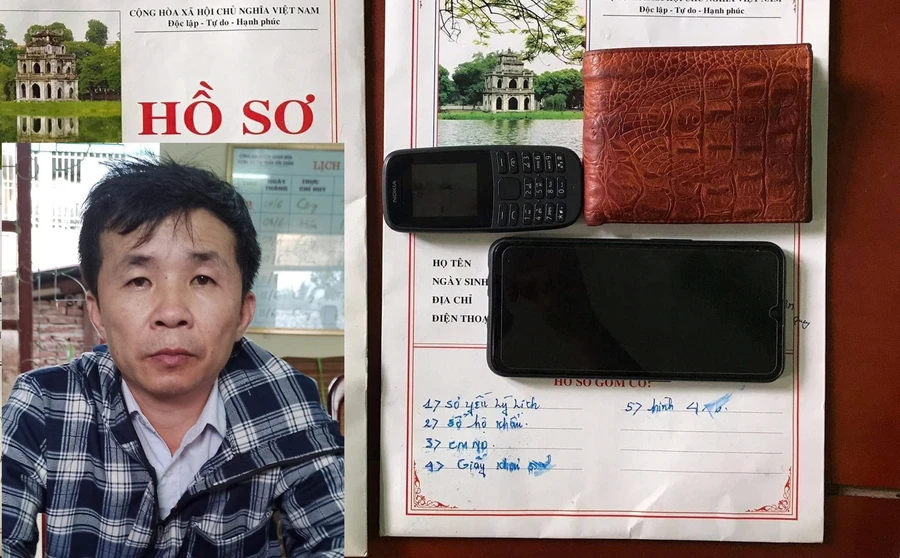 CỘNG HÒA XÃ HỘI CHỦ NGHĨA VIỆT NAM
Độc lập - Tự do - Hạnh phúc
HỒ SƠ
LỊCH
NGÀY THÁNG
TRỰC CHỈ HUY
Độc lập - Tự do - Hạnh phúc
NOKIA
HỌ TÊN
NGÀY SINH
ĐỊA CHỈ
ĐIỆN THOẠ
HỒ SƠ GỒM CÓ:
1) Sơ yếu lý lịch
2) sổ hộ khẩu.
3) CMND.
4) Giấy khai
5) hình 4